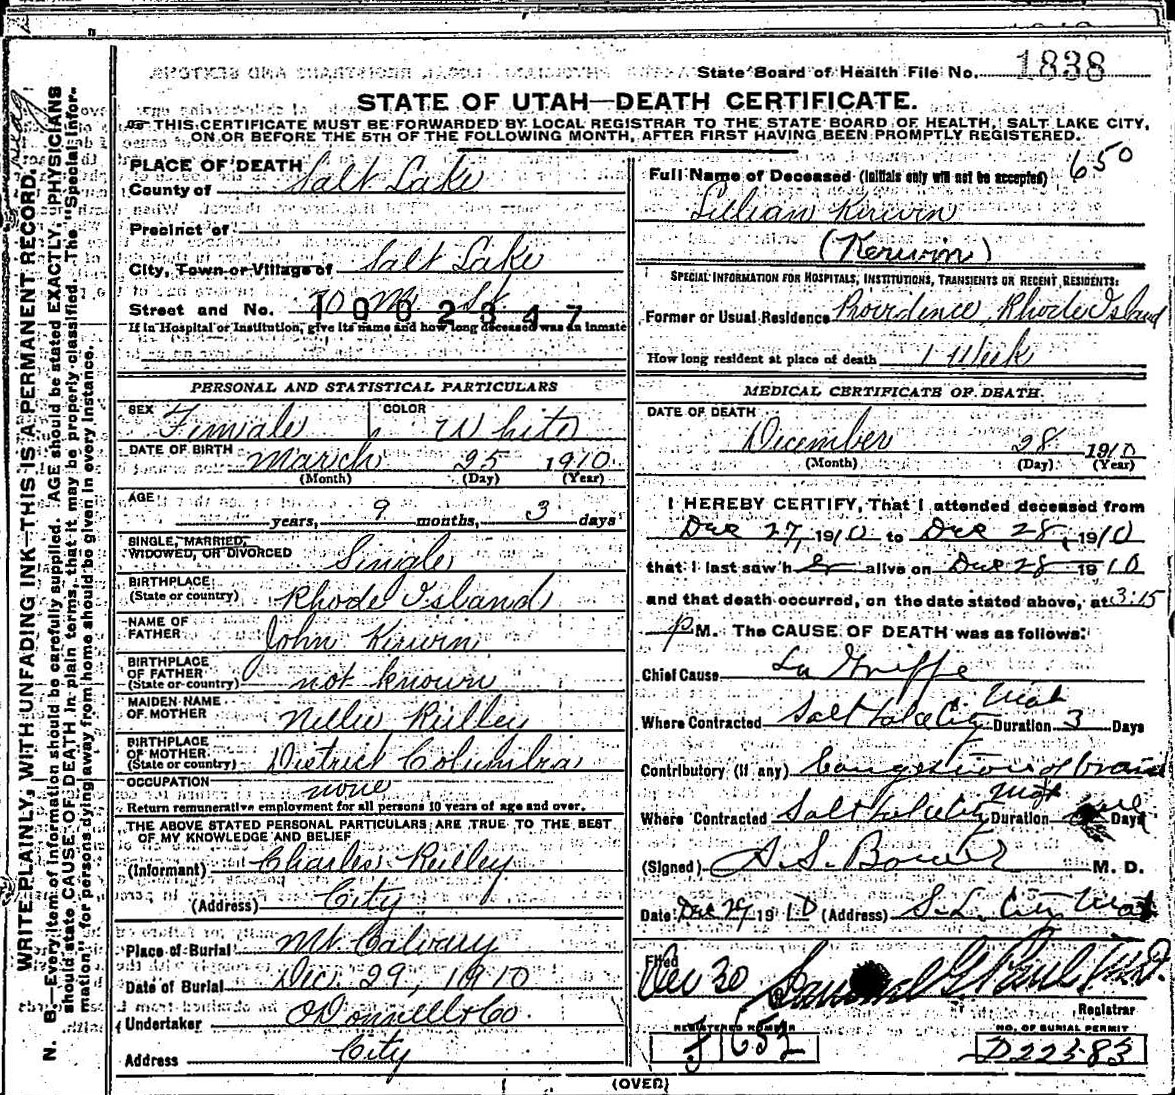 State Board of Health File No. 1838
STATE OF UTAH—DEATH CERTIFICATE.
THIS CERTIFICATE MUST BE FORWARDED BY LOCAL REGISTRAR TO THE STATE BOARD OF HEALTH, SALT LAKE CITY,
ON OR BEFORE THE 5TH OF THE FOLLOWING MONTH, AFTER FIRST HAVING BEEN PROMPTLY REGISTERED.
WRITE PLAINLY, WITH UNFADING INK—THIS IS A PERMANENT RECORD.
N. B.—Every item of information should be carefully supplied. AGE should be stated EXACTLY. PHYSICIANS
should state CAUSE OF DEATH in plain terms, that it may be properly classified. The "Special Infor-
mation" for persons dying away from home should be given in every instance.
PLACE OF DEATH
County of Salt Lake
Precinct of
City, Town or Village of Salt Lake
Street and No. 70 M. St.
1002347
If in Hospital or Institution, give its name and how long deceased was an inmate
PERSONAL AND STATISTICAL PARTICULARS
SEX Female COLOR White
DATE OF BIRTH March 25 1910
(Month) (Day) (Year)
AGE
years, 9 months, 3 days
SINGLE, MARRIED,
WIDOWED, OR DIVORCED Single
BIRTHPLACE
(State or country) Rhode Island
NAME OF
FATHER John Kirwin
BIRTHPLACE
OF FATHER
(State or country) not known
MAIDEN NAME
OF MOTHER Nellie Reilley
BIRTHPLACE
OF MOTHER
(State or country) District Columbia
OCCUPATION none
Return remunerative employment for all persons 10 years of age and over.
THE ABOVE STATED PERSONAL PARTICULARS ARE TRUE TO THE BEST
OF MY KNOWLEDGE AND BELIEF
(Informant) Charles Reilley
(Address) City
Place of Burial Mt Calvary
Date of Burial Dec. 29, 1910
Undertaker O'Donnell & Co.
Address City
650
Full Name of Deceased (Initials only will not be accepted)
Lillian Kirwin
(Kerwin)
SPECIAL INFORMATION FOR HOSPITALS, INSTITUTIONS, TRANSIENTS OR RECENT RESIDENTS:
Former or Usual Residence Providence, Rhode Island
How long resident at place of death 1 Week
MEDICAL CERTIFICATE OF DEATH.
DATE OF DEATH
December 28 1910
(Month) (Day) (Year)
I HEREBY CERTIFY, That I attended deceased from
Dec 27, 1910 to Dec 28, 1910
that I last saw h er alive on Dec 28 1910
and that death occurred, on the date stated above, at 3:15
p M. The CAUSE OF DEATH was as follows:
Chief Cause La Griffe
Where Contracted Salt Lake City Utah Duration 3 Days
Contributory (if any) Congestion of brain
Where Contracted Salt Lake City Utah Duration Days
(Signed) A. S. Bower M. D.
Date Dec 29 1910 (Address) S. L. City Utah
Filed
Dec 30 Samuel G Paul M.D.
Registrar
REGISTERED NUMBER
J 652
NO. OF BURIAL PERMIT
D22583
(OVER)